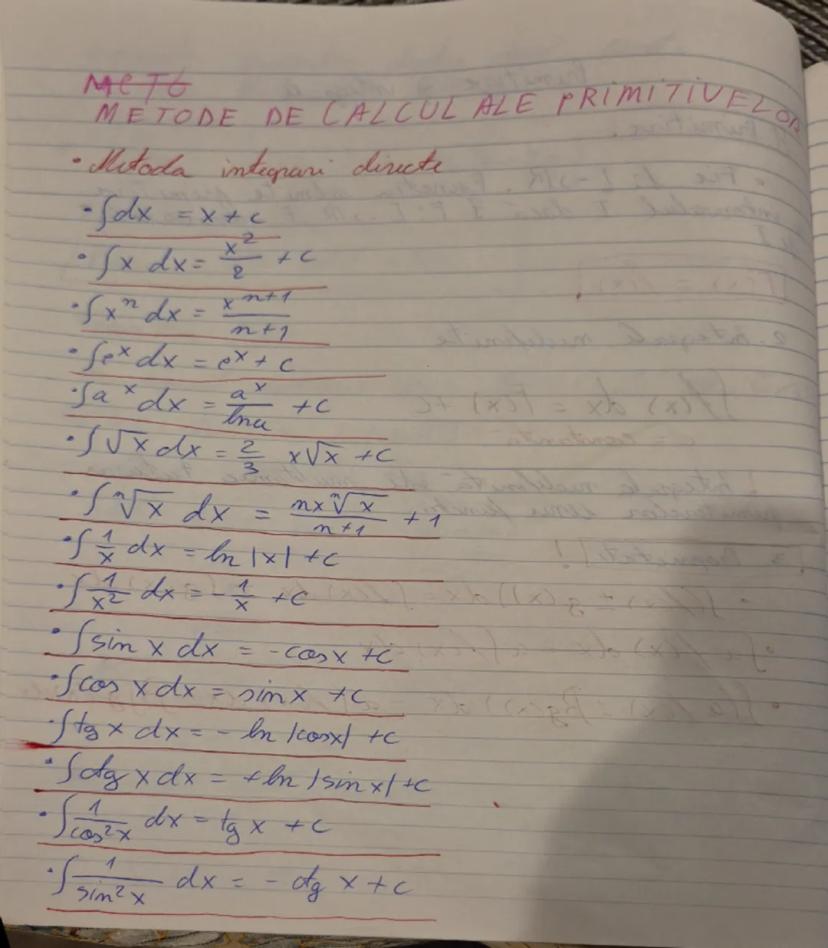 METODE DE CALCUL ALE PRIMITIVELOR
• Metoda integrari directe
• ∫dx = x + c
• ∫x dx = x²/2 + c
• ∫xⁿ dx = xⁿ⁺¹/n+1
• ∫eˣ dx = eˣ + c
• ∫aˣ dx = aˣ/lna + c
• ∫√x dx = 2/3 x√x + c
• ∫ⁿ√x dx = nx ⁿ√x/n+1 + 1
• ∫1/x dx = ln |x| + c
• ∫1/x² dx = -1/x + c
• ∫sin x dx = -cosx + c
• ∫cos x dx = sinx + c
• ∫tg x dx = - ln |cosx| + c
• ∫ctg x dx = +ln |sin x| + c
• ∫1/cos²x dx = tg x + c
• ∫1/sin²x dx = - ctg x + c